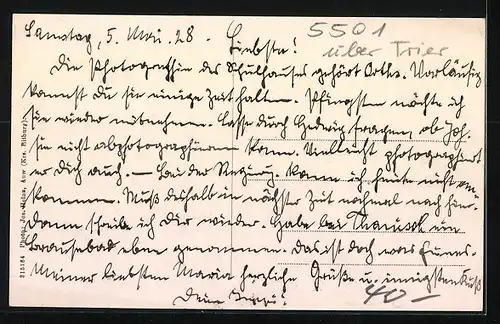 Samstag, 5. Mai. 28. Liebste!
5501
über Trier
Die Photographie des Schulhauses gehört Vorläufig
kannst Du sie einige Zeit halten. Pfingsten möchte ich
sie wieder mitnehmen. Lasse durch Hedwig fragen, ob Joh.
sie nicht abphotographieren kann. Vielleicht photographiert
er Dich auch. — kann ich heute nicht
kommen. Muß deshalb in nächster Zeit nochmal nach
Dann schreibe ich Dir wieder. Habe bei ein
Brausebad eben genommen. Das ist doch was
Meiner liebsten Maria herzliche Grüße u. innigsten Kuß
Dein
40-
315164
Auw (Krs. Bitburg)